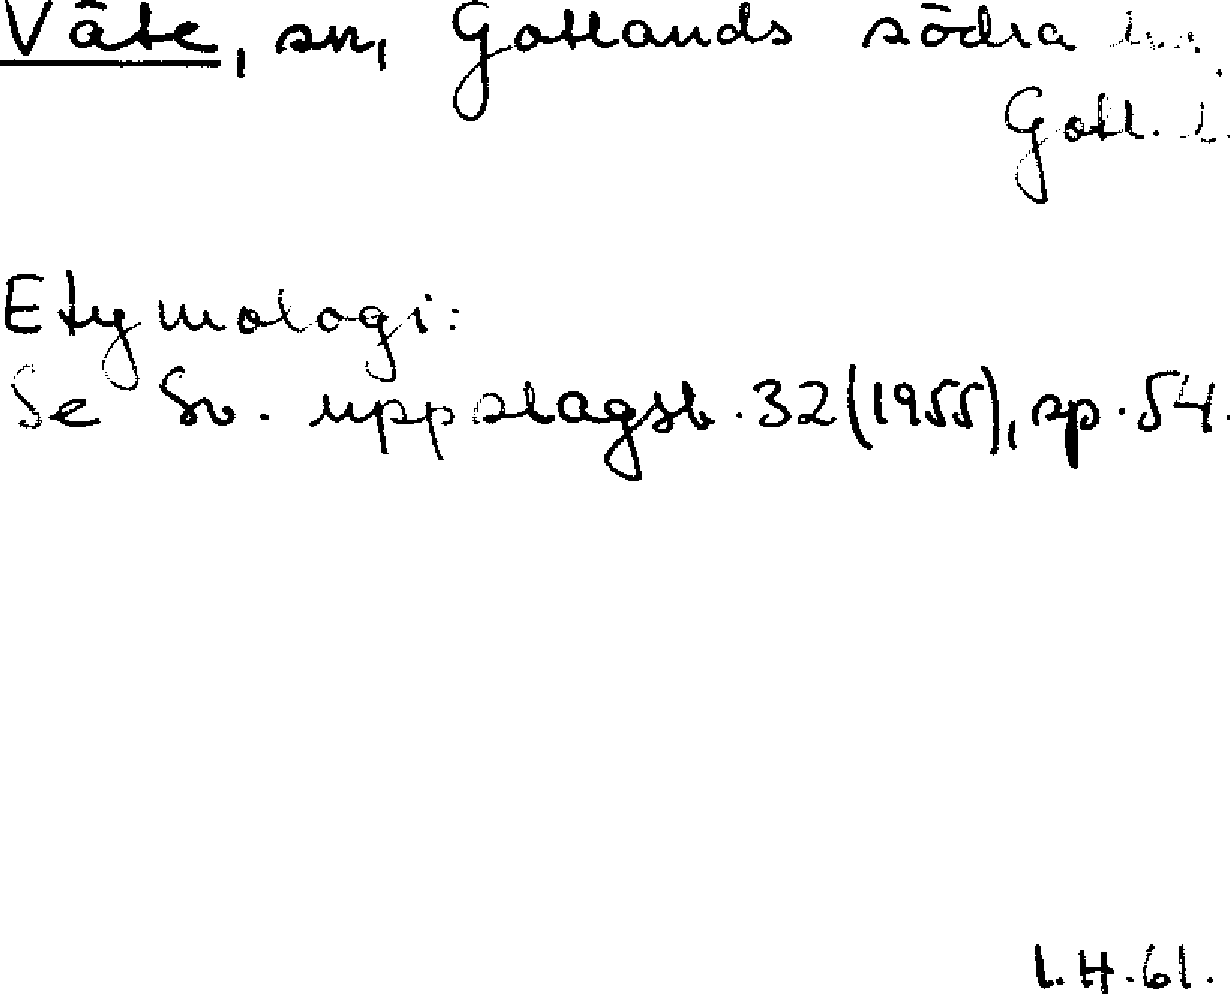 Väte, sn, Gotlands södra hd.
Gotl. l.
Etymologi:
Se Sv. uppslagsb. 32 (1955), sp. 54.
l. H. 61.